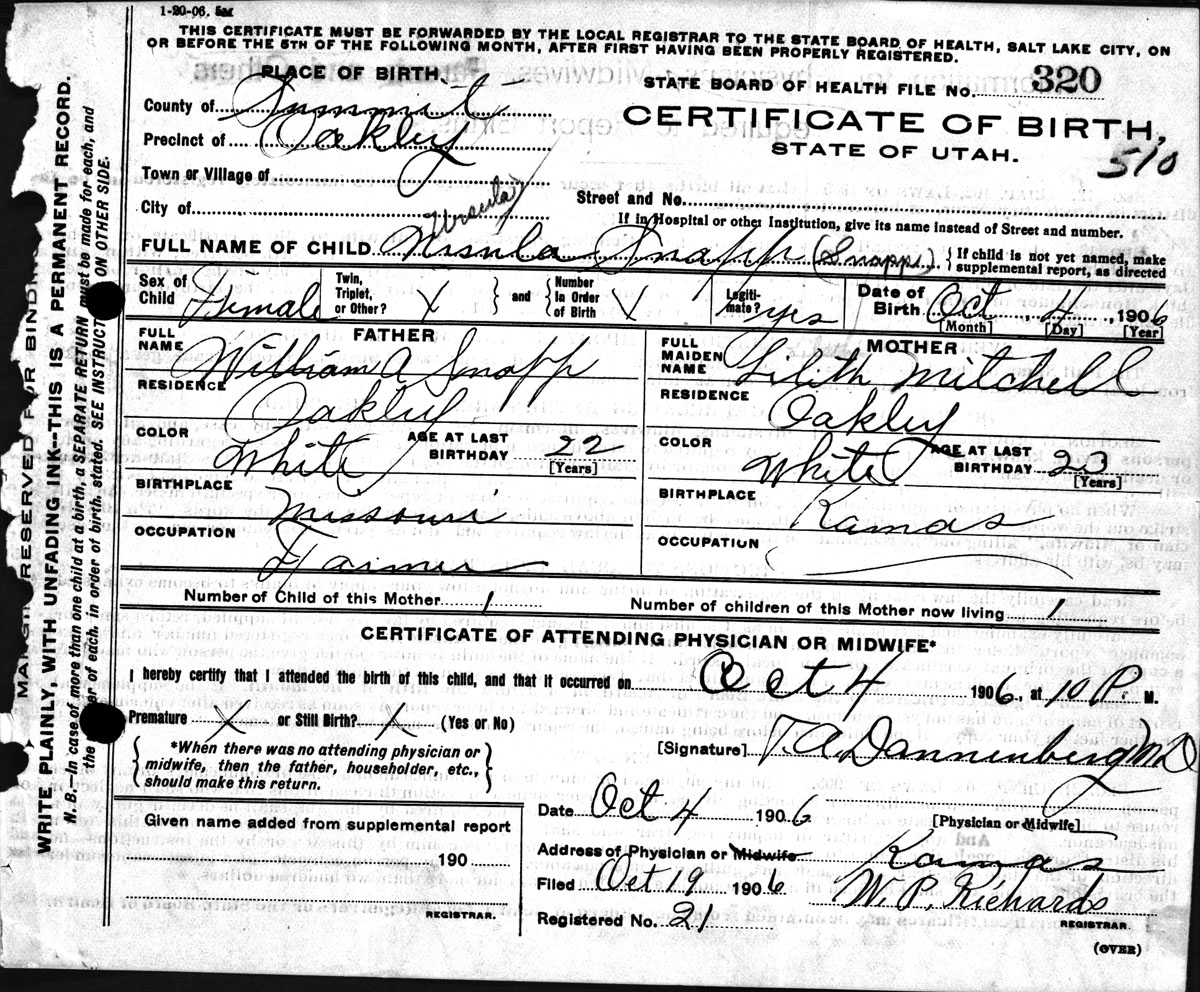 1-20-06. 5m
THIS CERTIFICATE MUST BE FORWARDED BY THE LOCAL REGISTRAR TO THE STATE BOARD OF HEALTH, SALT LAKE CITY, ON
OR BEFORE THE 5TH OF THE FOLLOWING MONTH, AFTER FIRST HAVING BEEN PROPERLY REGISTERED.
PLACE OF BIRTH.
STATE BOARD OF HEALTH FILE NO. 320
County of Summit
CERTIFICATE OF BIRTH,
Precinct of Oakley
STATE OF UTAH.
510
Town or Village of
Street and No.
City of
If in Hospital or other Institution, give its name instead of Street and number.
Ursula
FULL NAME OF CHILD Ursula Snapp (Snapp) { If child is not yet named, make supplemental report, as directed
Sex of Child Female
Twin, Triplet, or Other? X } and { Number In Order of Birth X
Legiti-mate? yes
Date of Birth Oct 4, 1906
[Month] [Day] [Year]
FATHER
FULL NAME William A Snapp
RESIDENCE Oakley
COLOR White AGE AT LAST BIRTHDAY 22 [Years]
BIRTHPLACE Missouri
OCCUPATION Farmer
MOTHER
FULL MAIDEN NAME Lilith Mitchell
RESIDENCE Oakley
COLOR White AGE AT LAST BIRTHDAY 23 [Years]
BIRTHPLACE Kamas
OCCUPATION
Number of Child of this Mother 1 Number of children of this Mother now living 1
CERTIFICATE OF ATTENDING PHYSICIAN OR MIDWIFE*
I hereby certify that I attended the birth of this child, and that it occurred on Oct 4 1906, at 10 P. M.
Premature X or Still Birth? X (Yes or No)
{ *When there was no attending physician or
midwife, then the father, householder, etc.,
should make this return. }
[Signature] T. A. Dannenberg MD
[Physician or Midwife]
Date Oct 4 1906
Address of Physician or Midwife Kamas
Filed Oct 19 1906 W. P. Richards
REGISTRAR.
Registered No. 21
(OVER)
Given name added from supplemental report
190
REGISTRAR.
MARGIN RESERVED FOR BINDING
WRITE PLAINLY, WITH UNFADING INK--THIS IS A PERMANENT RECORD.
N. B.—In case of more than one child at a birth, a SEPARATE RETURN must be made for each, and
the number of each, in order of birth, stated. SEE INSTRUCTIONS ON OTHER SIDE.